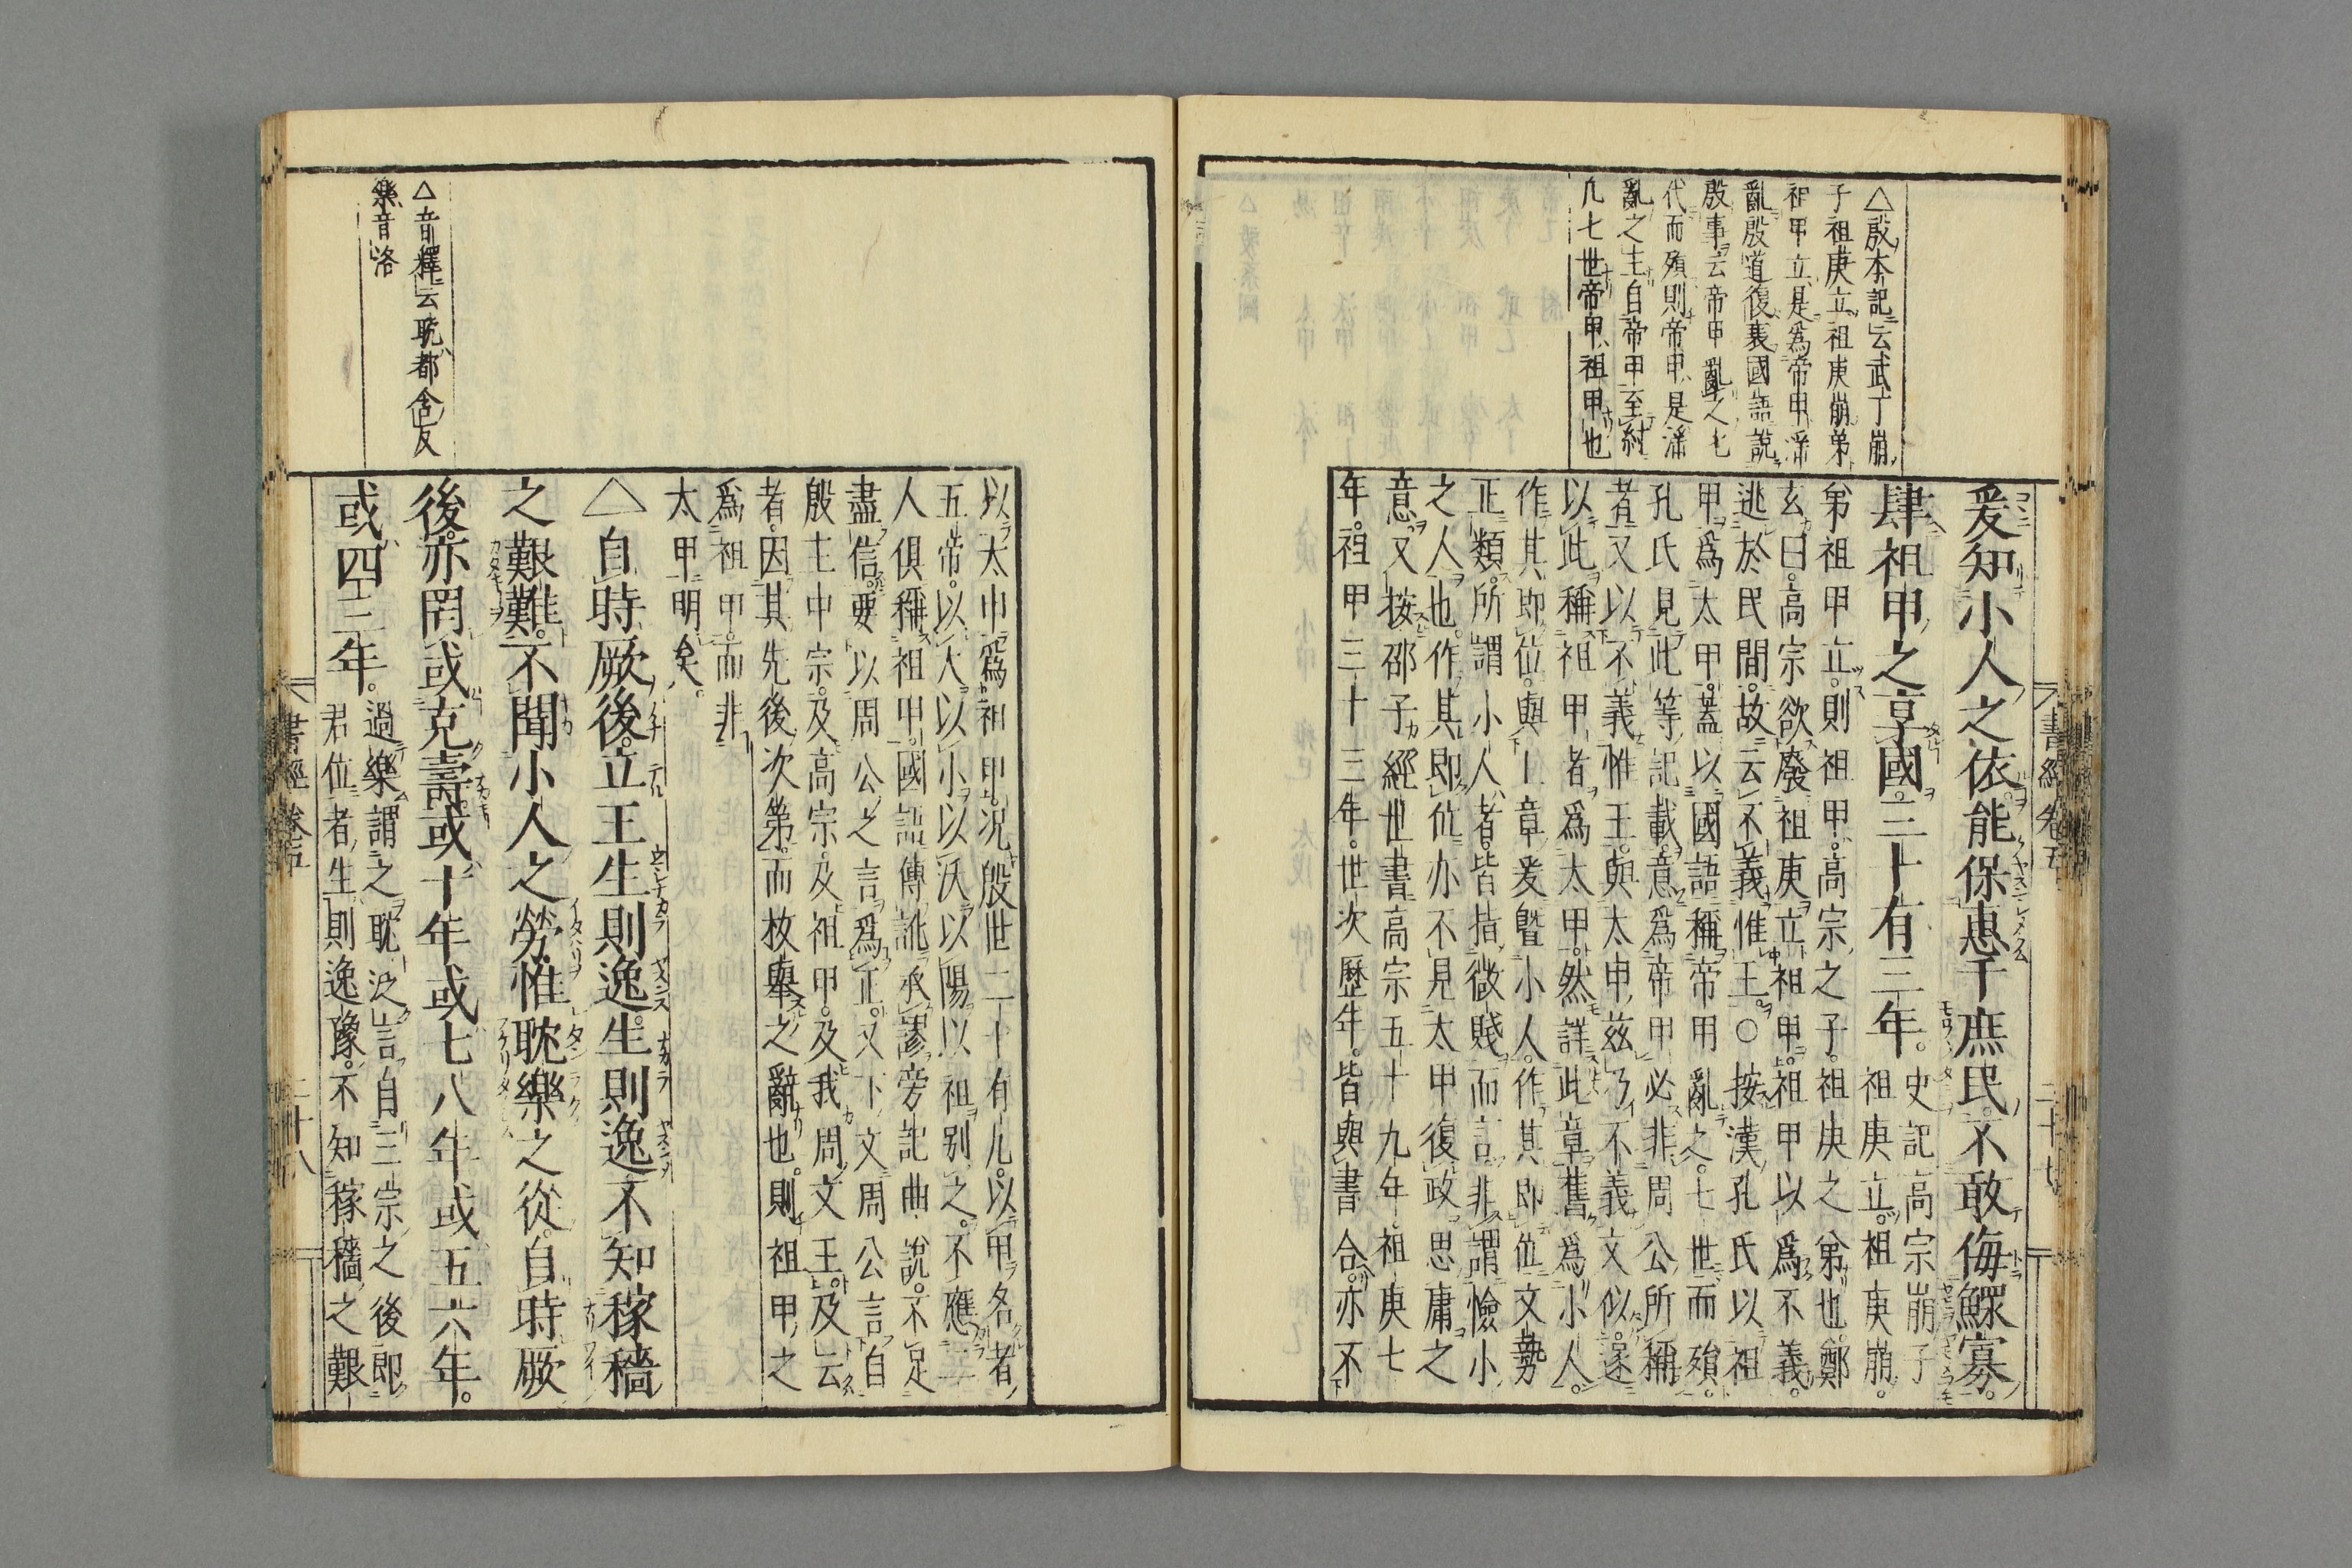 △殷本記云武丁崩
子祖庚立祖庚崩弟
祖甲立是爲帝甲淫
亂殷道復衰國語說
殷事云帝甲亂之七
代而殞則帝甲是淫
亂之主自帝甲至紂
凡七世帝甲祖甲也
爰知小人之依能保惠于庶民不敢侮鰥寡。
肆祖甲之享國。三十有三年。
史記高宗崩子
祖庚立。祖庚崩。
弟祖甲立。則祖甲。高宗之子。祖庚之弟也。鄭
玄曰。高宗欲廢祖庚立祖甲。祖甲以爲不義。
逃於民間。故云不義惟王。○按漢孔氏以祖
甲爲太甲。蓋以國語稱帝甲亂之。七世而殞。
孔氏見此等記載。意爲帝甲必非周公所稱
者。又以不義惟王。與太甲茲乃不義文似。遂
以此稱祖甲者。爲太甲。然詳此章舊爲小人。
作其即位。與上章爰曁小人。作其即位文勢
正類。所謂小人者。皆指微賤而言。非謂憸小
之人也。作其即位。亦不見太甲復政思庸之
意。又按邵子經世書。高宗五十九年。祖庚七
年。祖甲三十三年。世次歷年。皆與書合。亦不
書經卷五
二十七
以太甲爲祖甲。況殷世二十有九。以甲名者
五帝。以太以小以沃以陽以祖別之。不應二
人俱稱祖甲。國語傳訛承謬旁記曲說。不足
盡信。要以周公之言爲正。又下文周公言自
殷王中宗。及高宗。及祖甲。及我周文王。及云
者。因其先後次第。而枚擧之辭也。則祖甲之
爲祖甲。而非
太甲明矣。
△自時厥後。立王生則逸。生則逸。不知稼穡
之艱難。不聞小人之勞。惟耽樂之從。自時厥
後。亦罔或克壽。或十年或七八年或五六年。
或四三年。
過樂謂之耽。泛言自三宗之後即
君位者。生則逸豫。不知稼穡之艱
△音釋云耽都含反
樂音洛
書經卷五
二十八